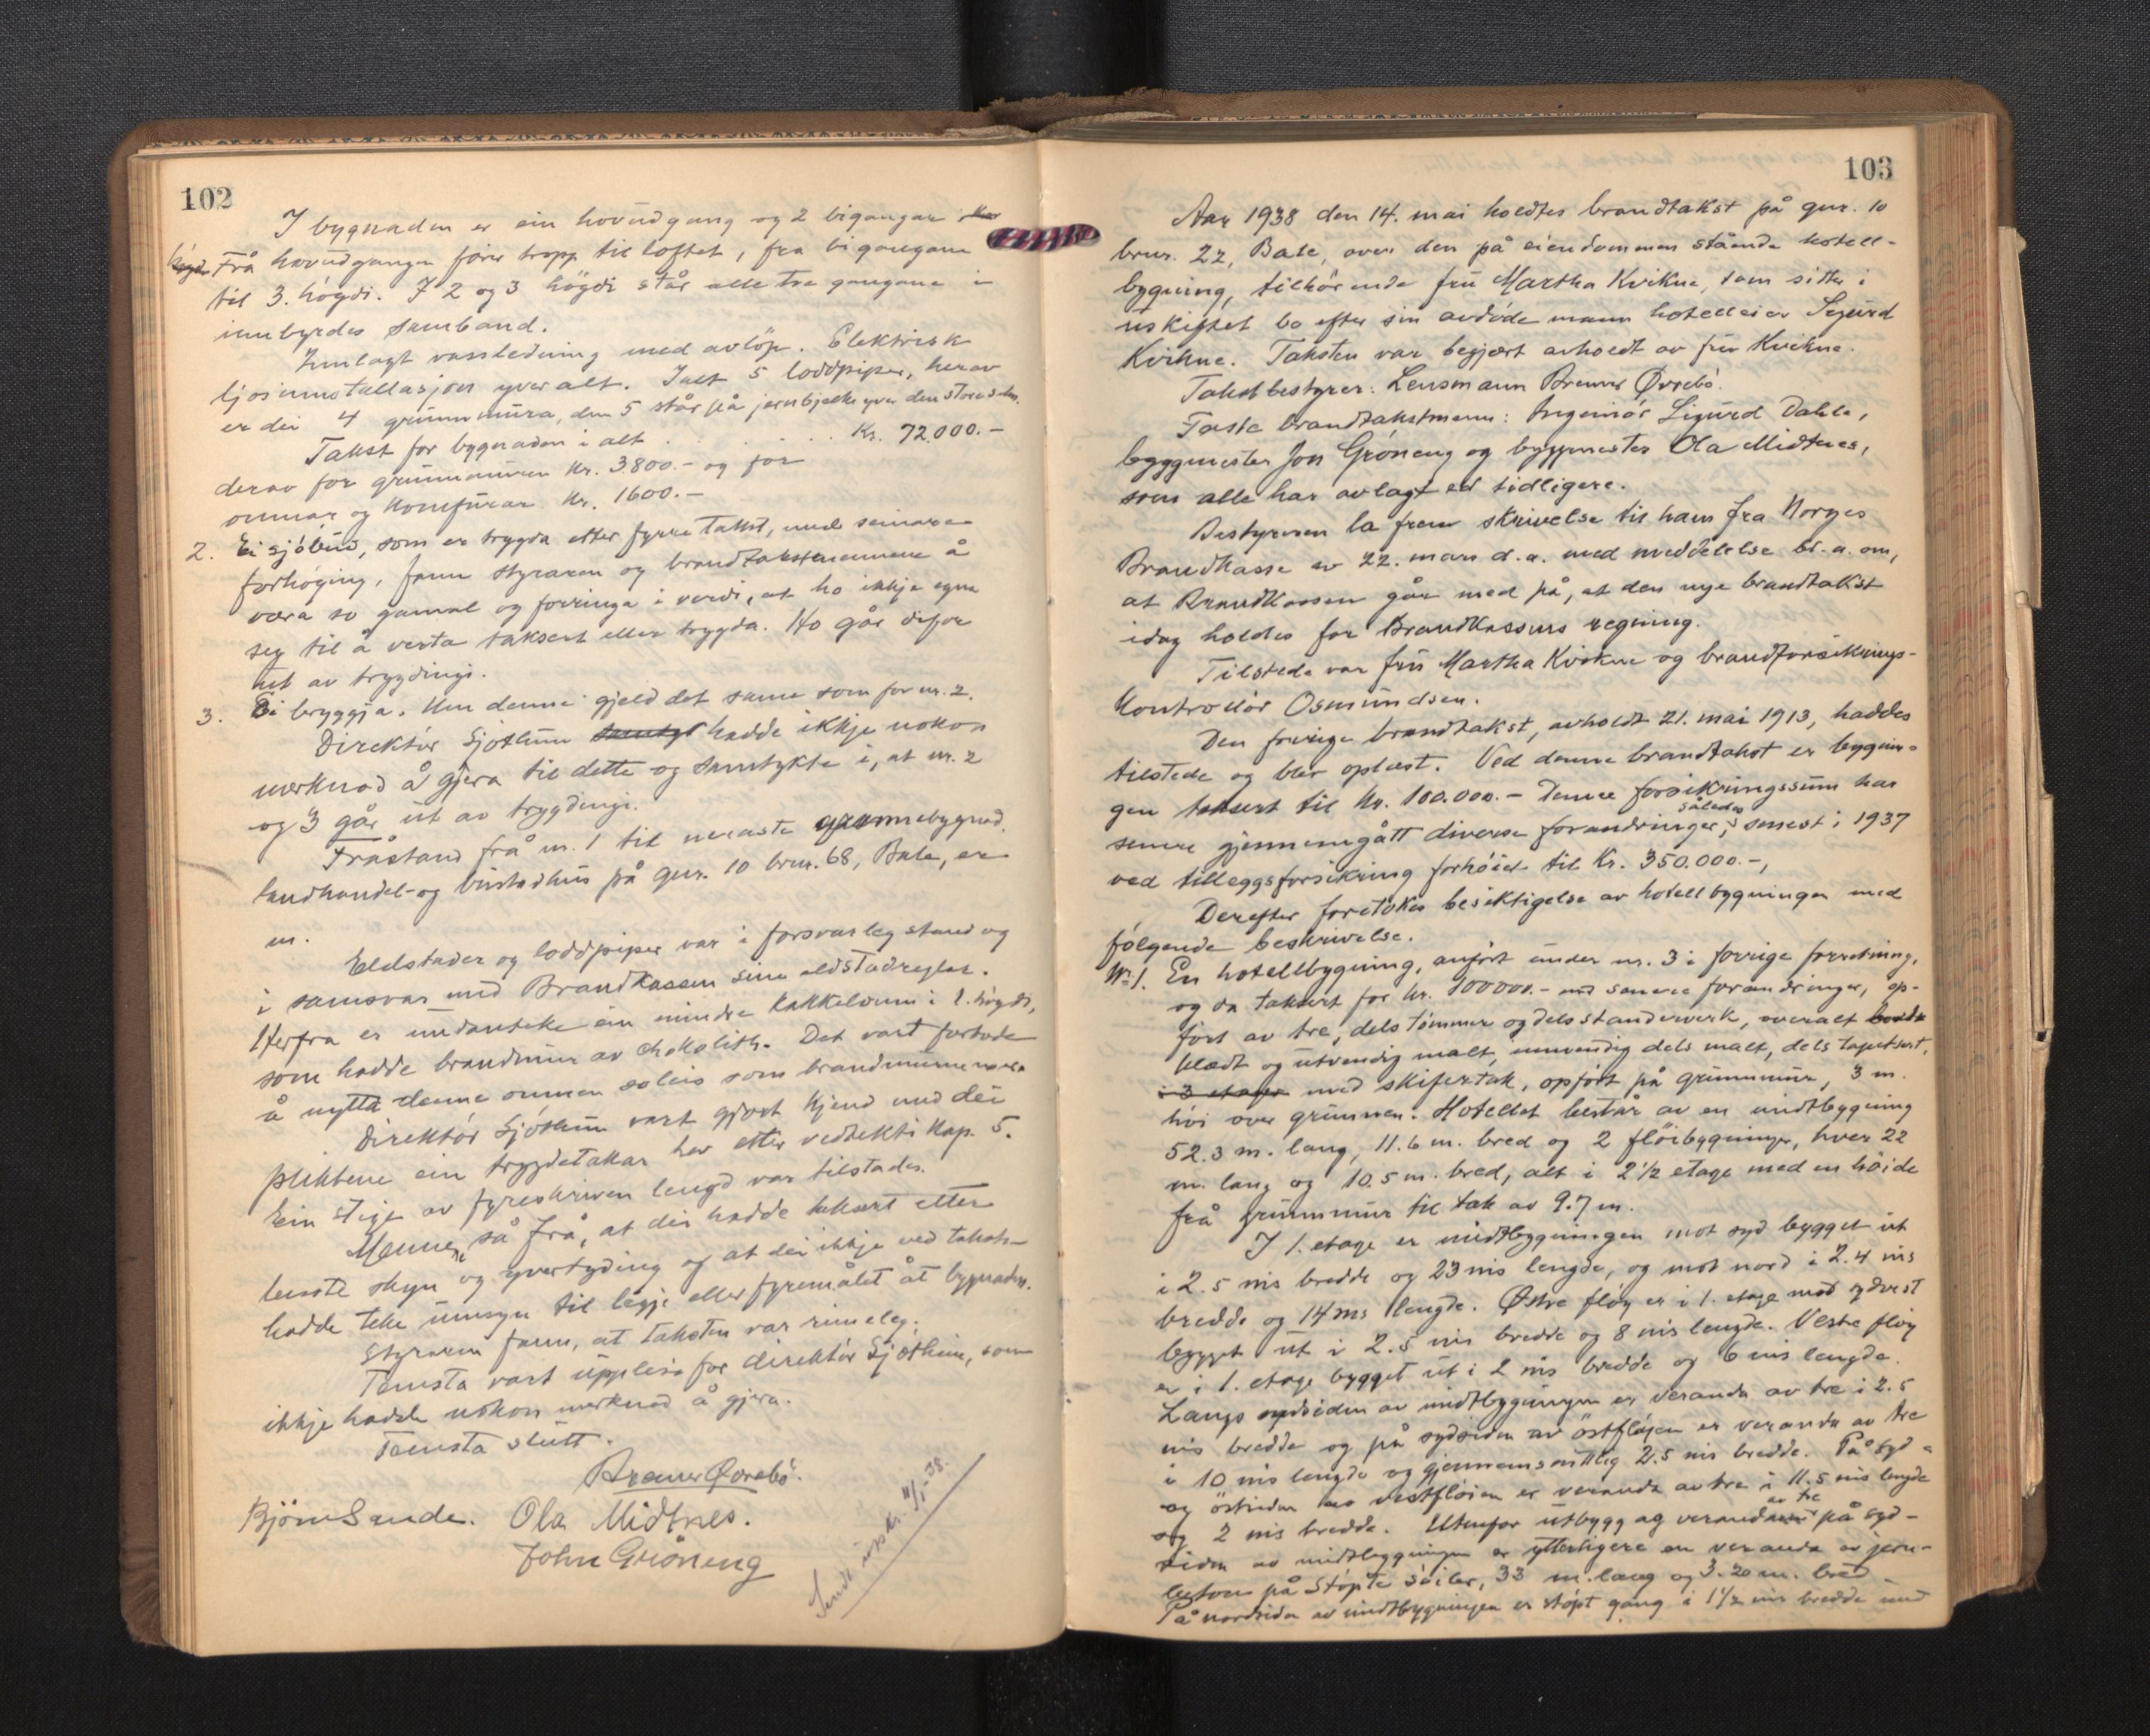 102
I bygnaden er ein hovudgang og 2 bigangar i
Frå hovudgangen fører tropp til loftet, fra bigangane
til 3. högdi. I 2 og 3 högdi står alle tre gangane i
innbyrdes samband.
Innlagt vassledning med avlöp. Elektrisk
ljosinnstallasjon yveralt. Ialt 5 loddpiper, herav
er dei 4 grunnmura, den 5 står på jernbjelke yver den store
Takst for bygnaden i alt . . . . . . Kr. 72.000.-
derav for grunnmuren Kr. 3.800.- og for
omnar og Komfurar Kr. 1600.-
2. Ei sjöbud, som er trygda etter fyrre takst, med seinare
forhöging, fann styraren og brandtakstmennene å
vera so gamal og forringa i verdi, at ho ikkje egna
seg til å verta taksert eller trygda. Ho går difor
ut av trygdingi.
3. Ei bryggja. Um denne gjeld det same som for nr. 2.
Direktör Sjöthun samtyk hadde ikkje nokon
merknad å gjera til dette og samtykte i, at nr. 2
og 3 går ut av trygdingi.
Fråstand frå nr. 1 til neraste grannebygnad,
landhandel- og bustadhus på gnr. 10 brnr. 68, Bale, er
m.
Eldstader og loddpiper var i forsvarleg stand og
i samsvar med Brandkassen sine eldstadreglar.
Herfra er undanteke ein mindre kakkelomn i 2. högdi,
som hadde brandmur av chokolith. Det vart forbode
å nytta denne omnen soleis som brandmuren
Direktör Sjöthun vart gjort kjend med dei
pliktene ein trygdetakar hev etter vedtekti Kap. 5.
Ein stige av fyreskriven lengd var tilstades.
Mennene så frå, at dei hadde taksert etter
beste skyn og yvertyding og at dei ikkje ved taksten
hadde teke umsyn til legje eller fyremålet åt bygnaden.
Styraren fann, at taksten var rimeleg.
Tensta vart upplesi for direktör Sjöthun, som
ikkje hadde nokon merknad å gjera.
Tensta slutt.
Bremer Övrebö.
Björn Sande. Ola Midtnes.
John Gröneng
Sendt utskr. 4/1-38.
103
Aar 1938 den 14. mai holdtes brandtakst på gnr. 10
brnr. 22, Bale, over den på eiendommen stående hotell-
bygning, tilhörende fru Martha Kvikne, som sitter i
uskiftet bo efter sin avdöde mann hotelleier Sigurd
Kvikne. Taksten var begjært avholdt av fru Kvikne.
Takstbestyrer: Lensmann Bremer Övrebö.
Faste brandtakstmenn: Ingeniör Sigurd Dahle,
byggmester Jon Gröneng og byggmester Ola Midtnes,
som alle har avlagt ed tidligere.
Bestyreren la frem skrivelse til ham fra Norges
Brandkasse av 22. mars d.a. med meddelelse bl.a. om,
at Brandkassen går med på, at den nye brandtakst
idag holdes for Brandkassens regning.
Tilstede var fru Martha Kvikne og brandforsikrings-
kontrollör Osmundsen.
Den forrige brandtakst, avholdt 21. mai 1913, haddes
tilstede og blev oplæst. Ved denne brandtakst er bygnin-
gen taksert til Kr. 100.000.- Denne forsikringssum har
senere gjennemgått diverse forandringer, således senest i 1937
ved tilleggsforsikring forhöiet til Kr. 350.000.-,
Derefter foretokes besiktigelse av hotellbygningen med
fölgende beskrivelse.
Nr 1. En hotellbygning, anfört under nr. 3 i forrige forretning,
og da taksert for kr. 100000.- med senere forandringer, op-
fört av tre, dels tömmer og dels standerverk, overalt bordk
klædt og utvendig malt, innvendig dels malt, dels tapetsert,
i 3 etager med skifertak, opfört på grunnmur, 3 m.
höi over grunnen. Hotellet består av en midtbygning
52.3 m. lang, 11.6 m. bred og 2 flöibygninger, hver 22
m. lang og 10.5 m. bred, alt i 2 1/2 etage med en höide
frå grunnmur til tak av 9.7 m.
I 1. etage er midtbygningen mot syd bygget ut
i 2.5 ms bredde og 23 ms lengde, og mot nord i 2.4 ms
bredde og 14 ms lengde. Östre flöy er i 1. etage mot sydvest
bygget ut i 2.5 ms bredde og 8 ms lengde. Vestre flöy
er i 1. etage bygget ut i 2 ms bredde og 6 ms lengde.
Langs sydsiden av midtbygningen er veranda av tre i 2.5
ms bredde og på sydsiden av östflöien er veranda av tre
i 10 ms lengde og gjennemsnittlig 2.5 ms bredde. På syd-
og östsiden av vestflöien er veranda av tre i 11.5 ms lengde
og 2 ms bredde. Utenfor utbygg og veranda av tre på syd-
siden av midtbygningen er ytterligere en veranda av jern-
betong på stöpte söiler, 33 m. lang og 3.20 m. bred.
På nordsiden av midtbygningen er stöpt gang i 1 1/2 ms bredde med